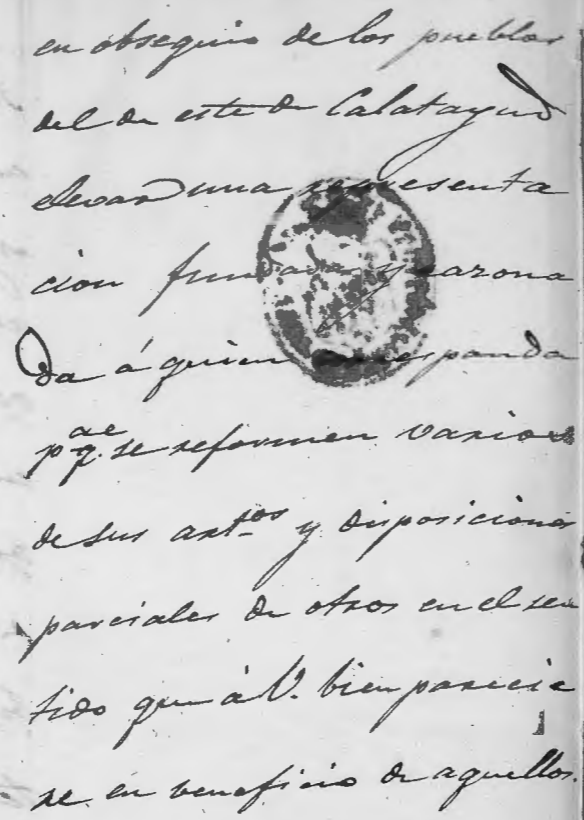 en obsequio de los pueblos
del de este de Calatayud
elevar una representa
cion fundada y razona
da á quien corresponda
pᵃ q.ᵉ se reformen varios
de sus artᵒˢ y disposiciones
parciales de otros en el sen
tido que á V. bien parecie
re en beneficio de aquellos.